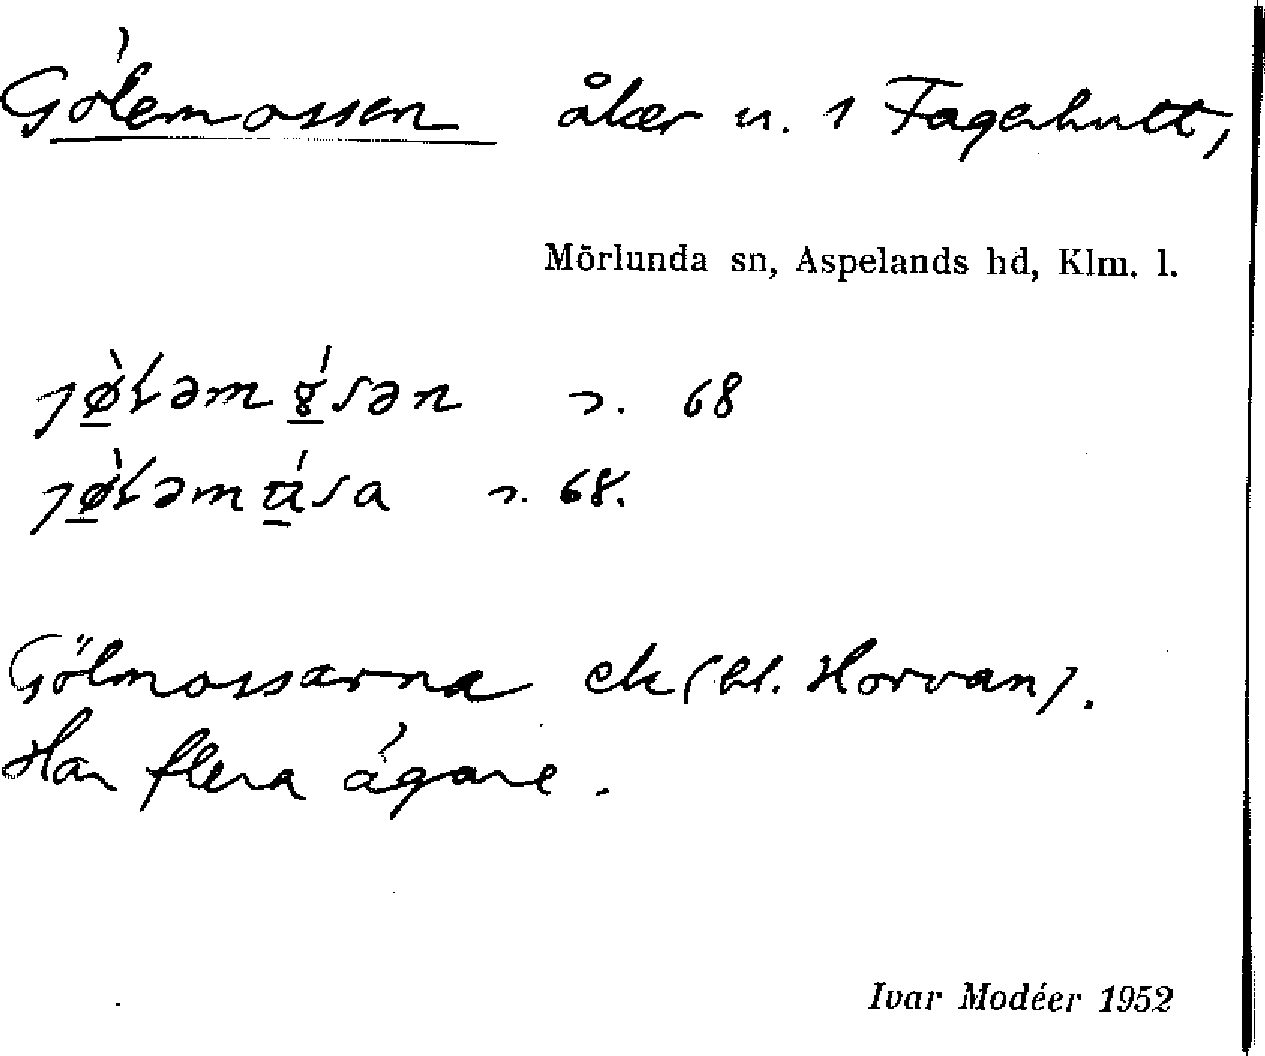 Gölemossen åker u. 1 Fagerhult,
Mörlunda sn, Aspelands hd, Klm. l.
68
68.
Gölmossarna ek (bl. Horvan).
Har flera ägare.
Ivar Modéer 1952